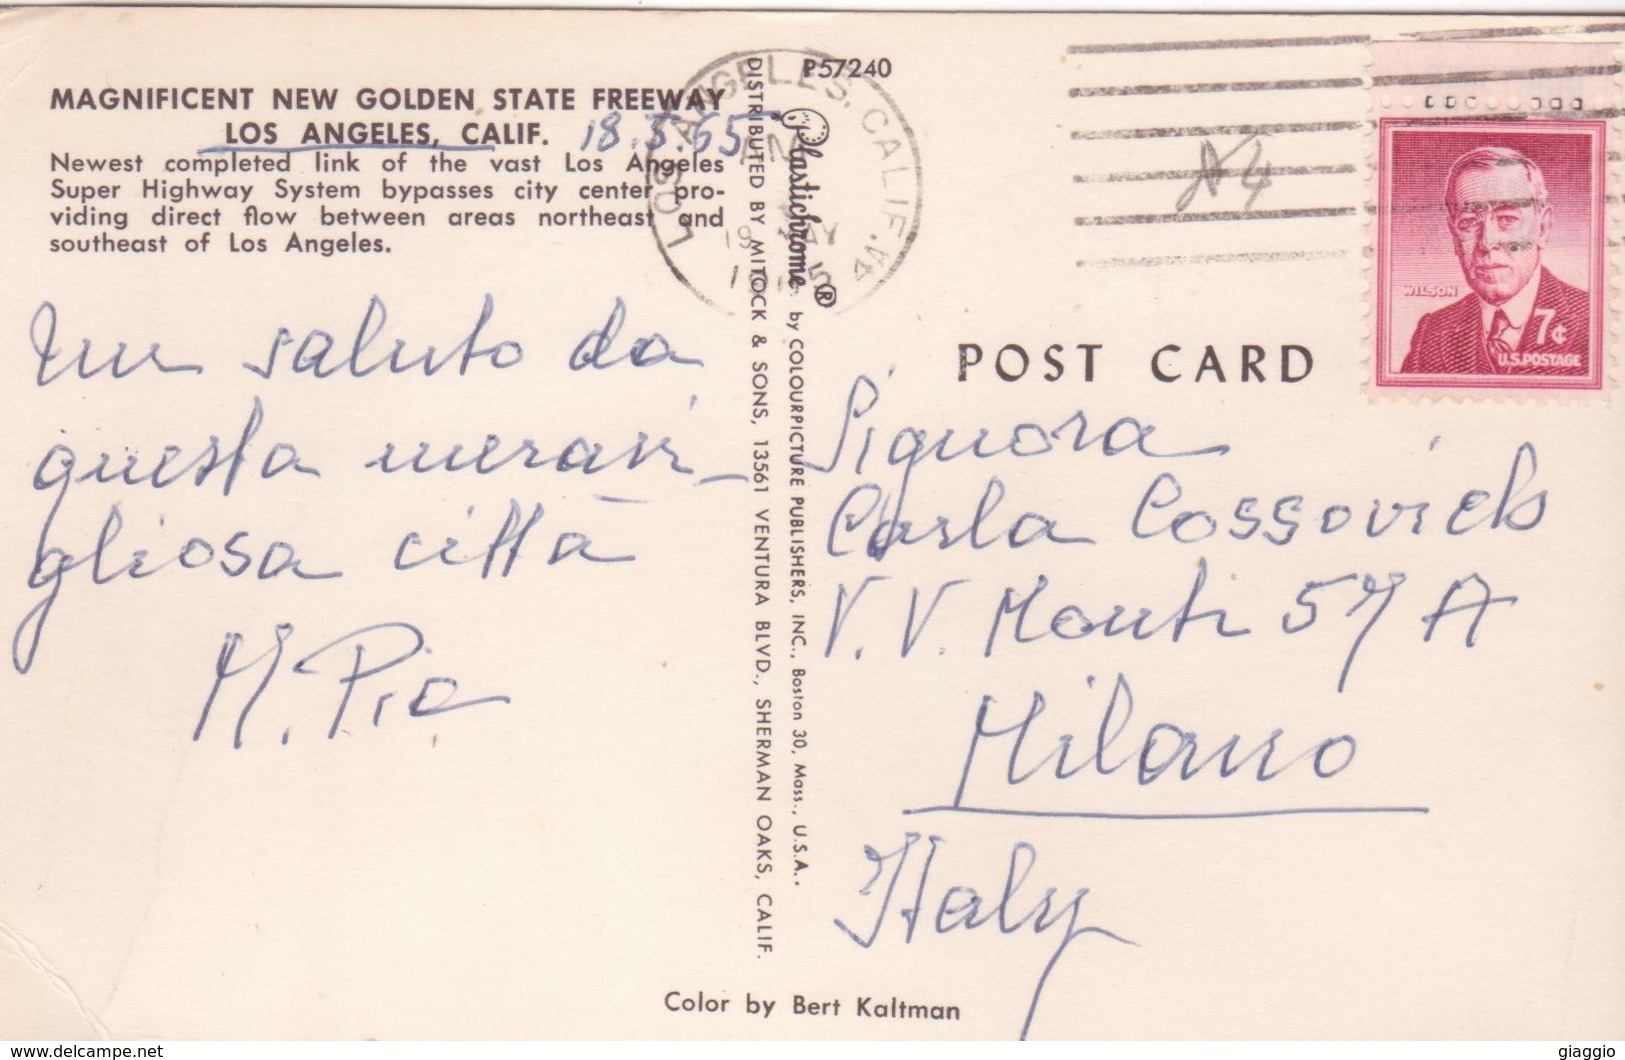 P57240
MAGNIFICENT NEW GOLDEN STATE FREEWAY
LOS ANGELES, CALIF. 18.5.65
Newest completed link of the vast Los Angeles
Super Highway System bypasses city center pro-
viding direct flow between areas northeast and
southeast of Los Angeles.
Un saluto da
questa meravi_
gliosa città
M. Pia
DISTRIBUTED BY MITOCK & SONS, 13561 VENTURA BLVD., SHERMAN OAKS, CALIF.
Plastichrome® by COLOURPICTURE PUBLISHERS, INC., Boston 30, Mass., U.S.A.
LOS ANGELES, CALIF. 4A
AM
18 MAY
WILSON
7¢
U.S. POSTAGE
POST CARD
Signora
Carla Cossovich
V. V. Monti 57 A
Milano
Italy
Color by Bert Kaltman
https://www.delcampe.net
giaggio